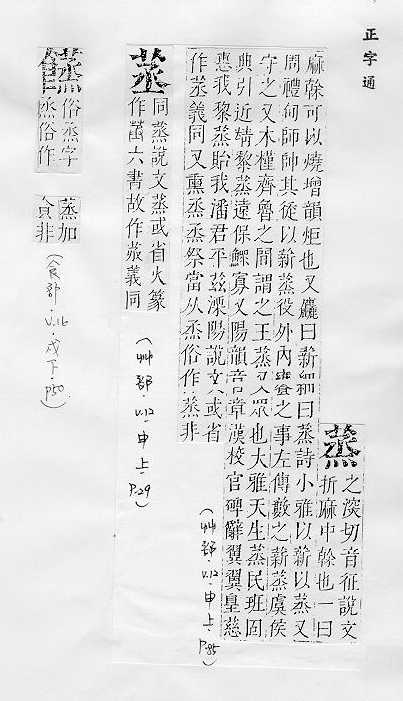 正字通
蒸 之深切音征說文
折麻中榦也一曰
麻榦可以燒增韻炬也又麤曰薪細曰蒸詩小雅以薪以蒸又
周禮甸師帥其徒以薪蒸役外內饔之事左傳藪之薪蒸虞侯
守之又木槿齊魯之間謂之王蒸又眾也大雅天生蒸民班固
典引近鞫黎蒸遠保鰥寡又陽韻音章漢校官碑辭翼翼皇慈
惠我黎蒸貽我潘君平兹溧陽說文或省
作䒱義同又熏烝烝祭當从烝俗作蒸非
(艸部.V.12.申上.P.85)
䒱 同蒸說文蒸或省火篆
作䒱六書故作䒱義同
(艸部.V.12.申上.P.29)
俗烝字
烝俗作
蒸加
食非
(食部.V.16.戌下.P50)